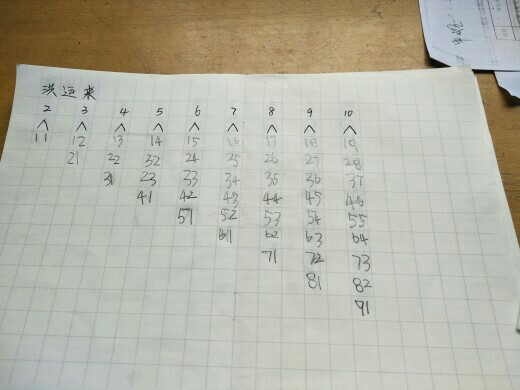 洪运来
2 3 4 5 6 7 8 9 10
11 12 13 14 15 16 17 18 19
21 22 32 24 25 26 27 28
31 23 33 34 35 36 37
41 42 43 44 45 46
51 52 53 54 55
61 62 63 64
71 72 73
81 82
91